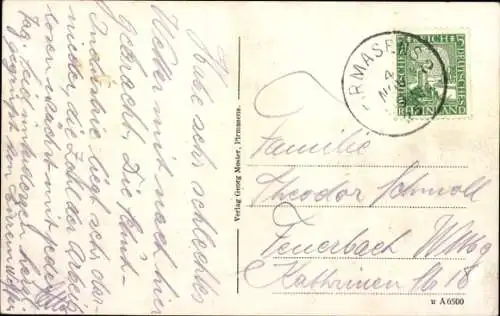 Habe sehr schlechtes
Wetter mit nach hier
gebracht. Die
Industrie liegt sehr dar-
nieder, die Zahl der Arbeits-
losen wächst mit jedem
Tag. Seid inzwischen herzl.
gegrüßt von Eurem
Verlag Georg Moster, Pirmasens.
PIRMASENS
DEUTSCHES REICH
Familie
Theodor Schmoll
Feuerbach Wttbg
Katharinen Str 18
w A 6500